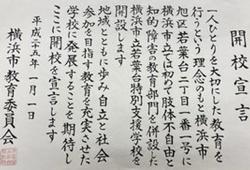 開校宣言
一人ひとりを大切にした教育を
行うという理念のもと横浜市
旭区若葉台二丁目一番一号に
横浜市立では初めて肢体不自由と
知的障害の教育部門を併設した
横浜市立若葉台特別支援学校を
開設します
地域とともに歩み自立と社会
参加を目指す教育を充実させた
学校に発展することを期待し
ここに開校を宣言します
平成二十五年一月一日
横浜市教育委員会